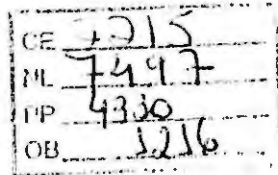 CE 1215
NL 7497
PP 4330
OB 1216